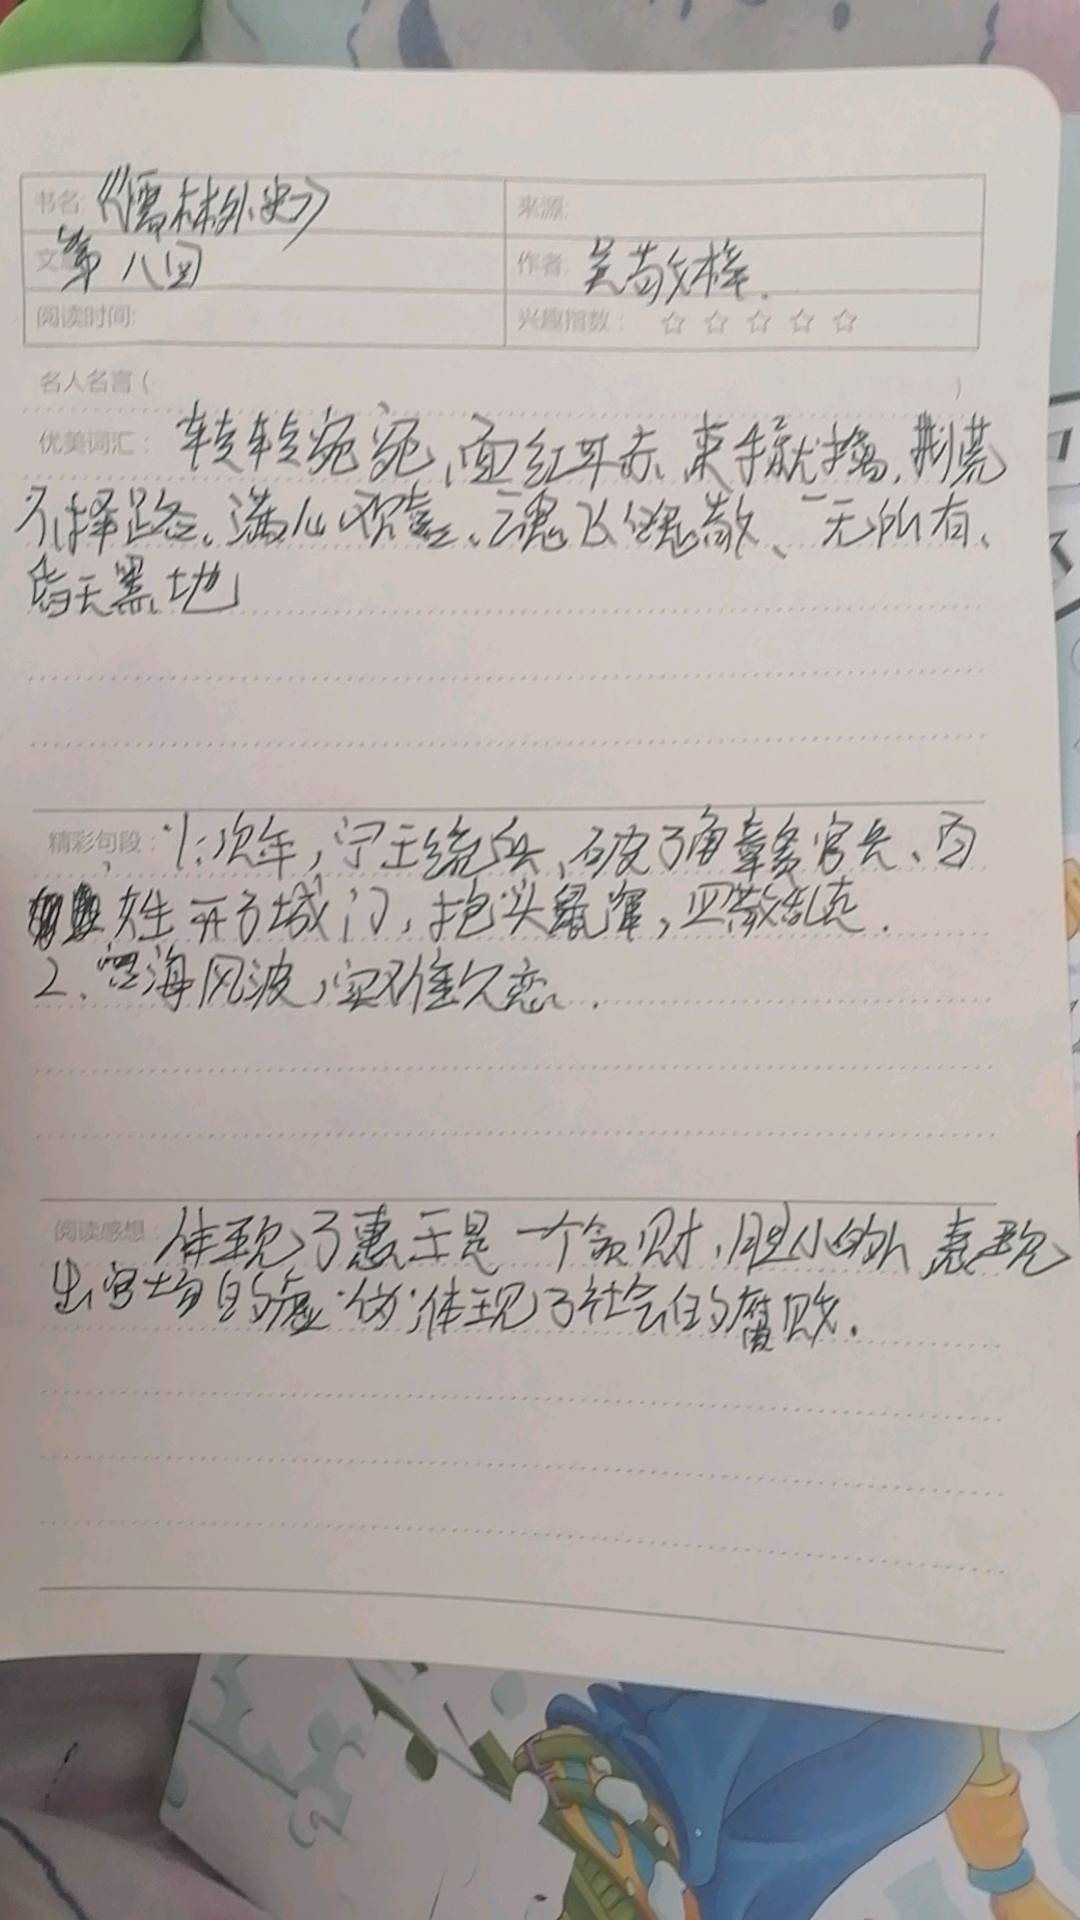 书名:《儒林外史》 来源:
第八回 作者: 吴敬梓.
阅读时间: 兴趣指数: ☆ ☆ ☆ ☆ ☆
名人名言( )
优美词汇: 转转宛宛、面红耳赤、束手就擒、荆荒
不择路、满心欢喜、魂飞魄散、一无所有、
皆天黑地
精彩句段: 1.次年,宁王统兵、破了南赣官兵、百
姓开了城门,抱头鼠窜,四散乱走.
2.宦海风波,实难久恋.
阅读感想: 体现了惠王是一个贪财,胆小的人 表现
出官场的虚伪,体现了社会的腐败.